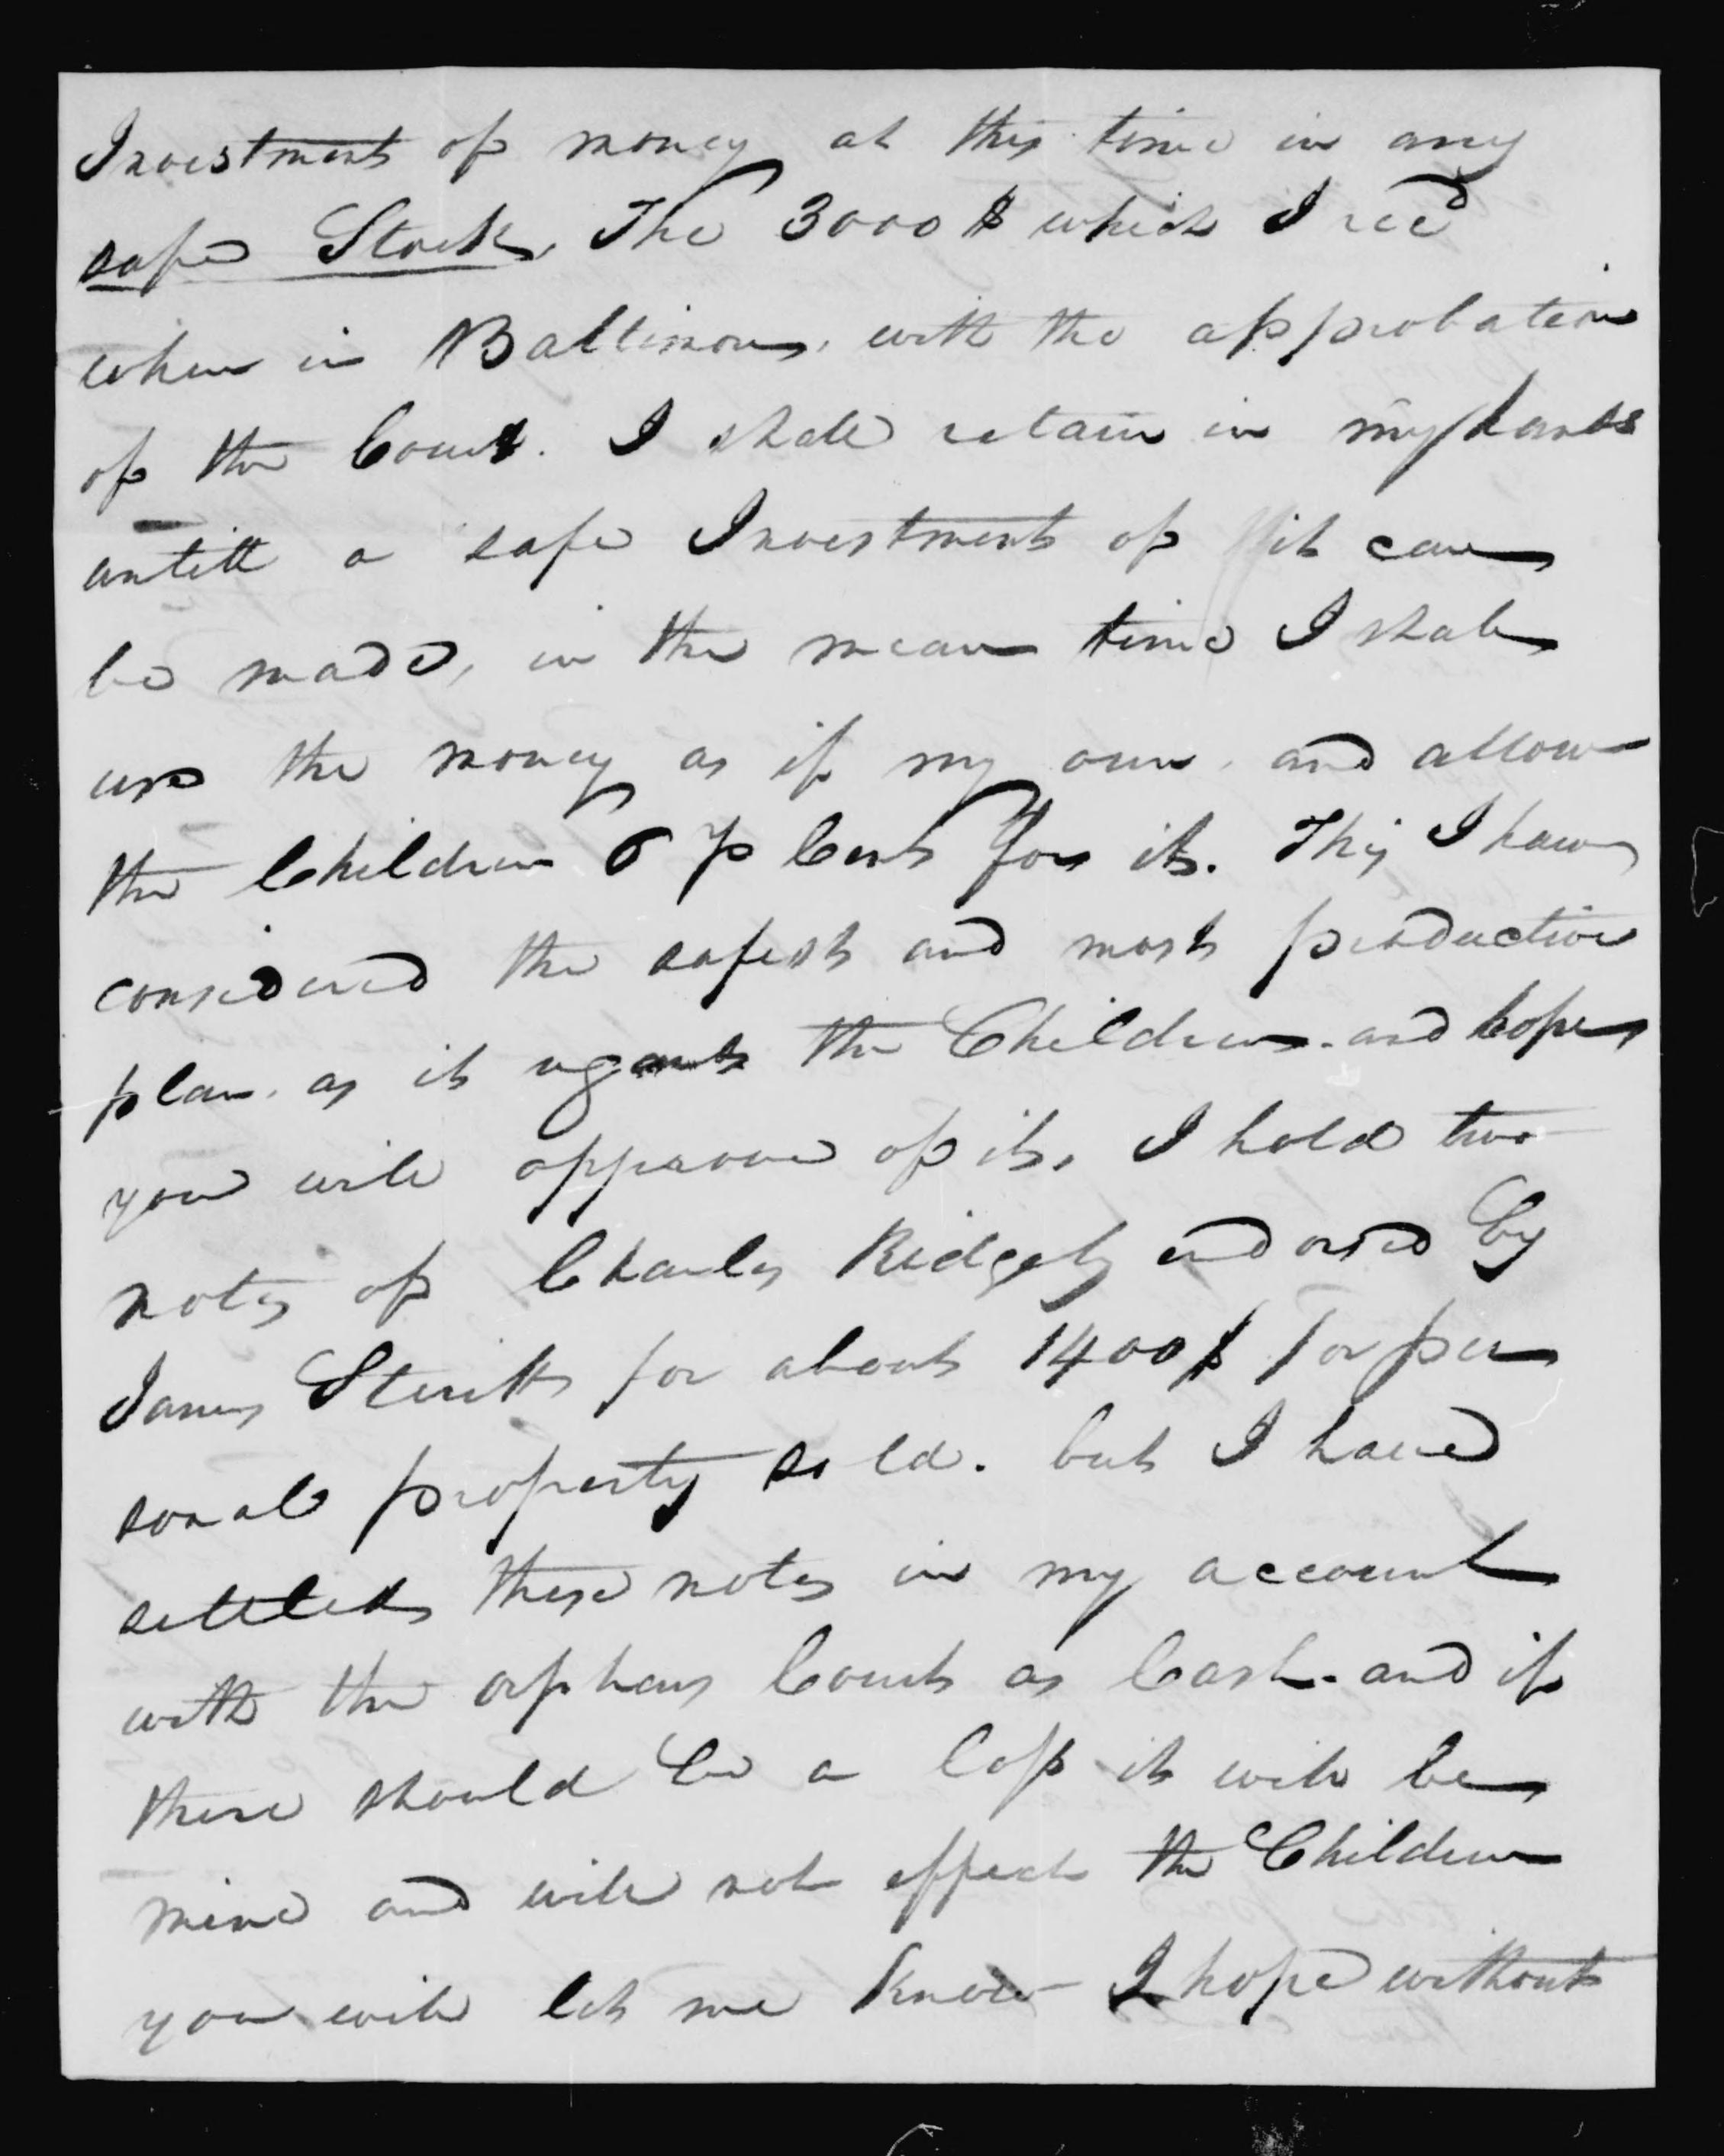 Investment of money at this time in any
safe Stock, The 3000 $ which I recd
when in Baltimore, with the approbation
of the Court. I shall retain in my hands
untill a safe Investment of it can
be made, in the mean time I shall
use the money as if my own, and allow
the Children 6 p Cent for it. This I have
considered the safest and most productive
plan, as it regards the Children. and hope
you will approve of it, I hold two
notes of Charles Ridgely endorsed by
James Sterett for about 1400 $ for per
sonal property sold. but I have
settled these notes in my account
with the orphans Court as Cash. and if
there should be a loss it will be
mine and will not effect the Children
you will let me know I hope without